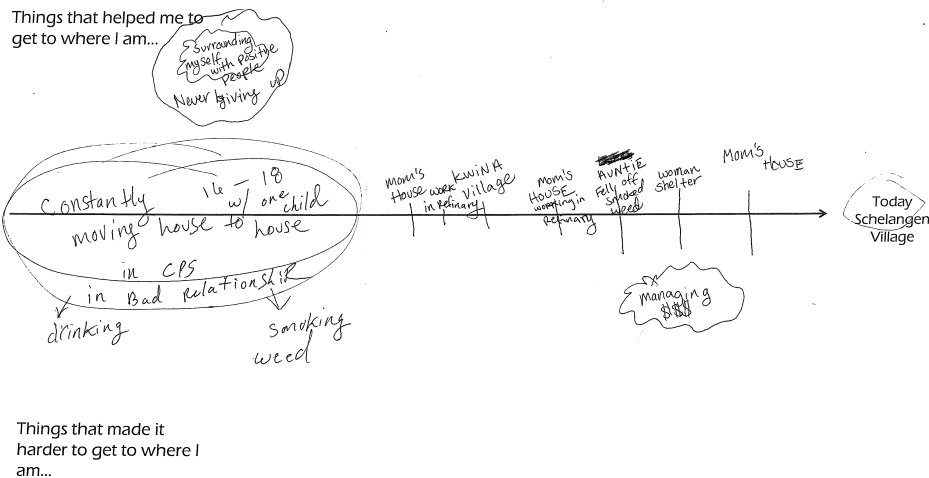 Things that helped me to
get to where I am...
surrounding
myself
with positive
people
Never giving up
Constantly
16 - 18
w/ one child
moving house to house
in CPS
in Bad Relationship
drinking
smoking
weed
Mom's
House
work
in Refinary
KWINA
Village
Mom's
HOUSE
working in
Refinary
AUNTIE
Felly off
smoked
weed
woman
shelter
Mom's
HOUSE
Today
Schelangen
Village
managing
$$$
Things that made it
harder to get to where I
am...